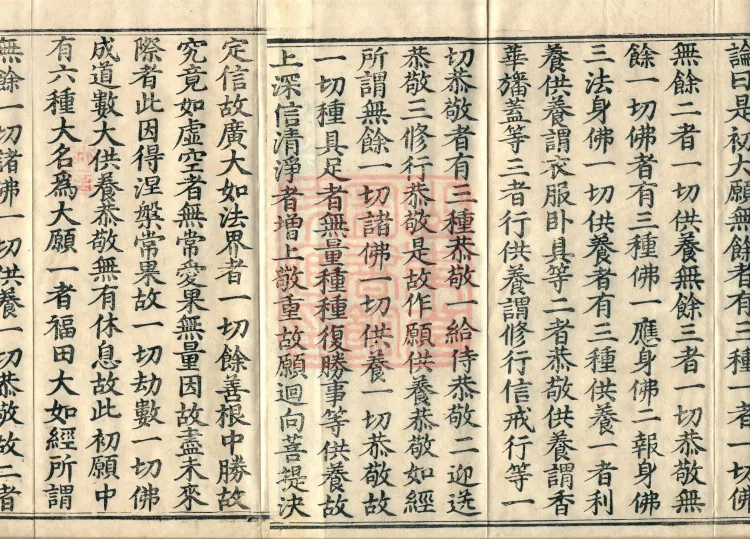 論曰是初大願無餘者有三種一者一切佛
無餘二者一切供養無餘三者一切恭敬無
餘一切佛者有三種佛一應身佛二報身佛
三法身佛一切供養者有三種供養一者利
養供養謂衣服臥具等二者恭敬供養謂香
華旛蓋等三者行供養謂修行信戒行等一
切恭敬者有三種恭敬一給侍恭敬二迎送
恭敬三修行恭敬是故作願供養恭敬如經
所謂無餘一切諸佛一切供養一切恭敬故
一切種具足者無量種種復勝事等供養故
上深信清淨者增上敬重故願迴向菩提決
定信故廣大如法界者一切餘善根中勝故
究竟如虛空者無常愛果無量因故盡未來
際者此因得涅槃常果故一切劫數一切佛
成道數大供養恭敬無有休息故此初願中
有六種大名爲大願一者福田大如經所謂
無餘一切諸佛一切供養一切恭敬故二者